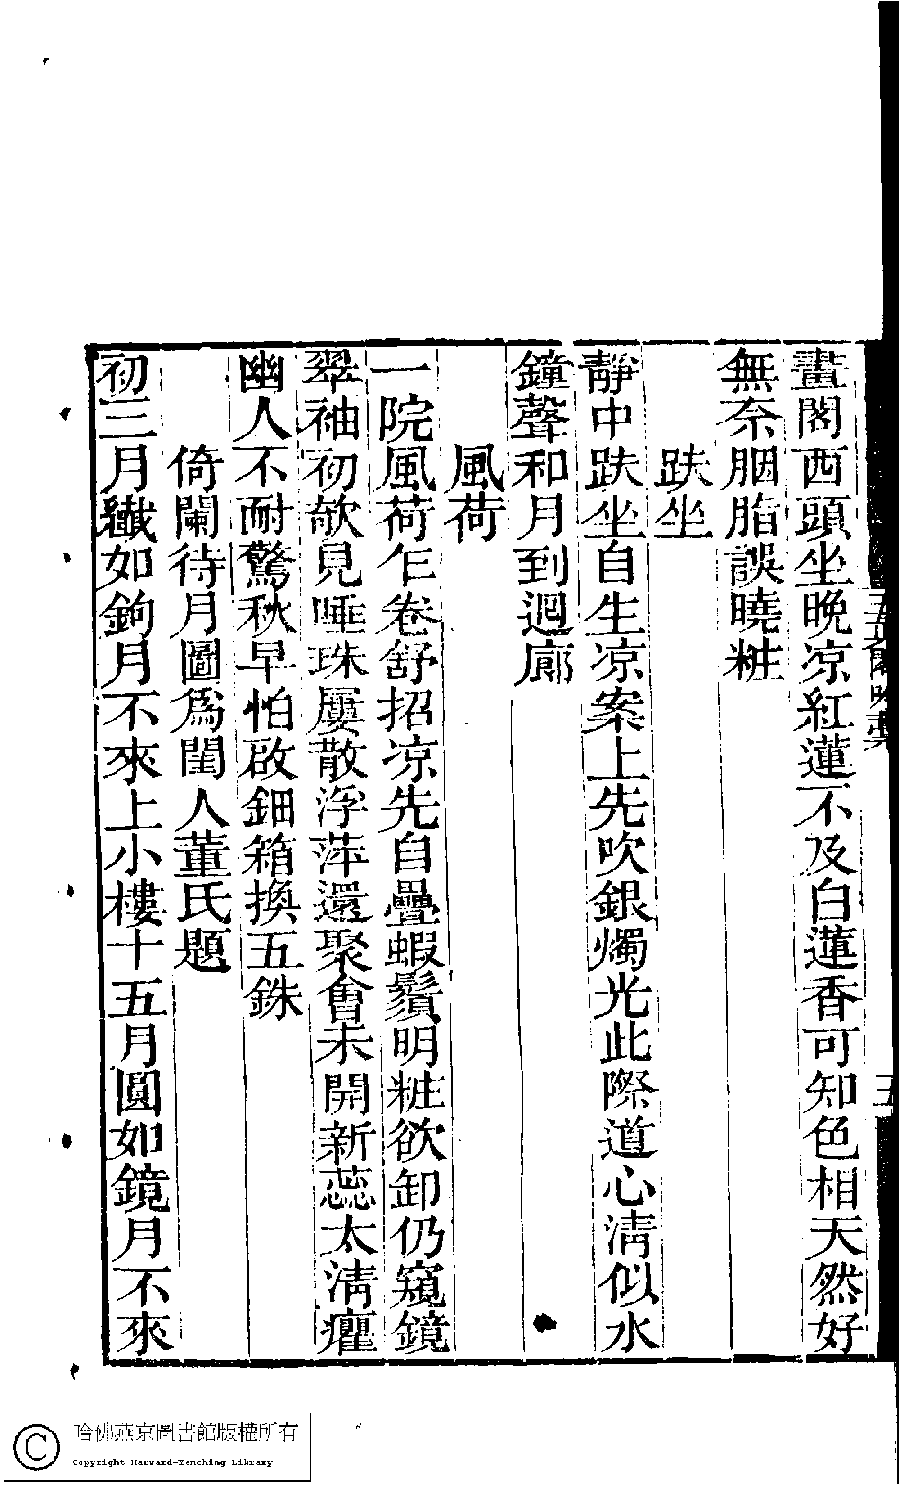 畫閣西頭坐晚凉紅蓮不及白蓮香可知色相天然好
無奈胭脂誤曉粧
趺坐
靜中趺坐自生凉案上先吹銀燭光此際道心清似水
鐘聲和月到迴廊
風荷
一院風荷乍卷舒招凉先自疊蝦鬚明粧欲卸仍窺鏡
翠袖初欹見唾珠屢散浮萍還聚會未開新蕊太清癯
幽人不耐驚秋早怕啟鈿箱換五銖
倚闌待月圖爲閨人董氏題
初三月纖如鉤月不來上小樓十五月圓如鏡月不來
五
哈佛燕京圖書館版權所有
Copyright Harvard-Yenching Library